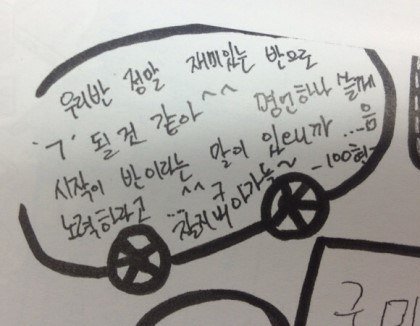 우리반 정말 재미있는 반으로
"7" 될것 같아^^ 명언하나 쓸게
시작이 반이라는 말이 있태니까 ...음
노력하라고 ^^
-100현-
구미